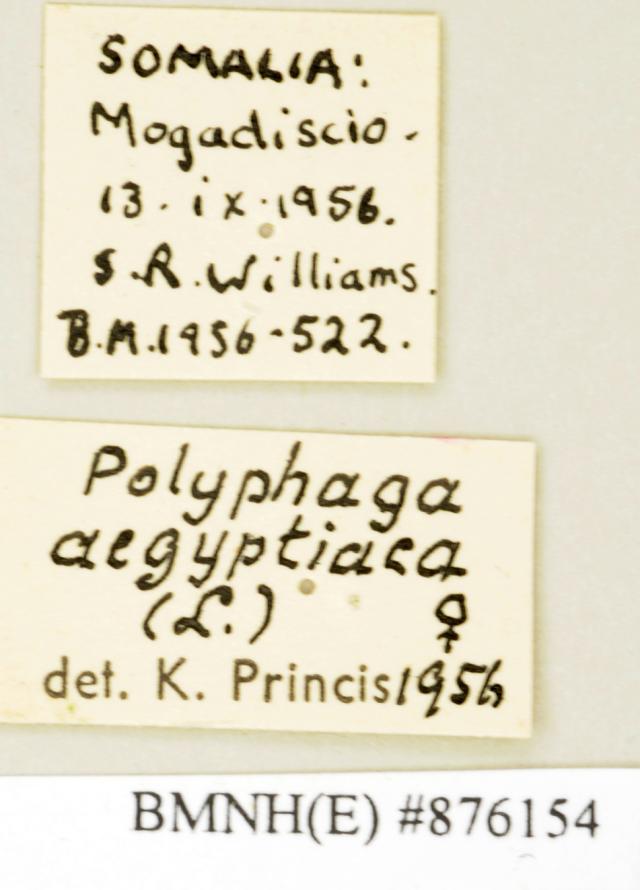 SOMALIA:
Mogadiscio.
13.ix.1956.
S.R.Williams.
B.M.1956-522.
Polyphaga
aegyptiaca
(L.) ♀
det. K. Princis 1956
BMNH(E) #876154